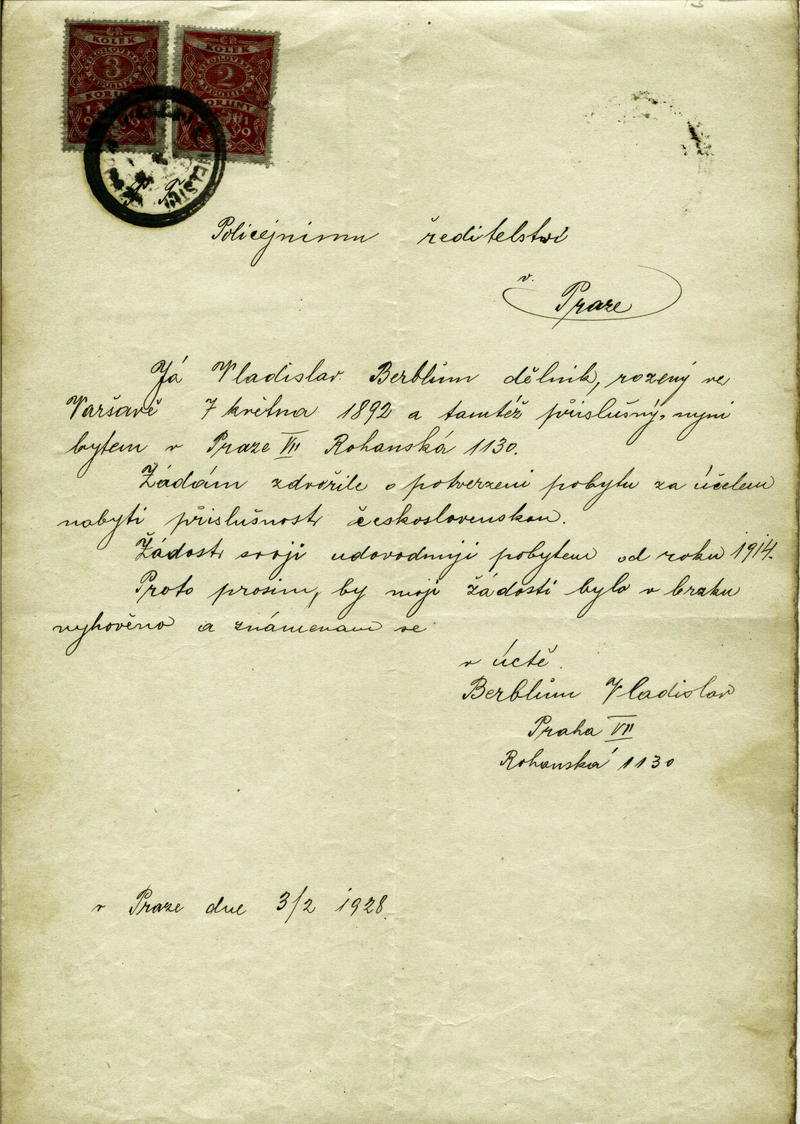 ČR
KOLEK
ČESKOSLOVENSKÁ
REPUBLIKA
3
KORUNY
ČR
KOLEK
ČESKOSLOVENSKÁ
REPUBLIKA
2
KORUNY
Policejnimu ředitelstvi
v.
Praze
Já Vladislav Berblům dělnik, rozený ve
Varšavě 7 května 1892 a tamtéž přislušný, nyni
bytem v Praze VIII Rohanská 1130.
Žádám zdvořile o potvrzeni pobytu za účelem
nabyti přislušnosti československou.
Žádost svoji udovodnuji pobytem od roku 1914.
Proto prosim, by moji žádosti bylo v brzku
vyhověno a známenam se
v úctě.
Berblům Vladislav
Praha VIII
Rohanská 1130
v Praze dne 3/2 1928.